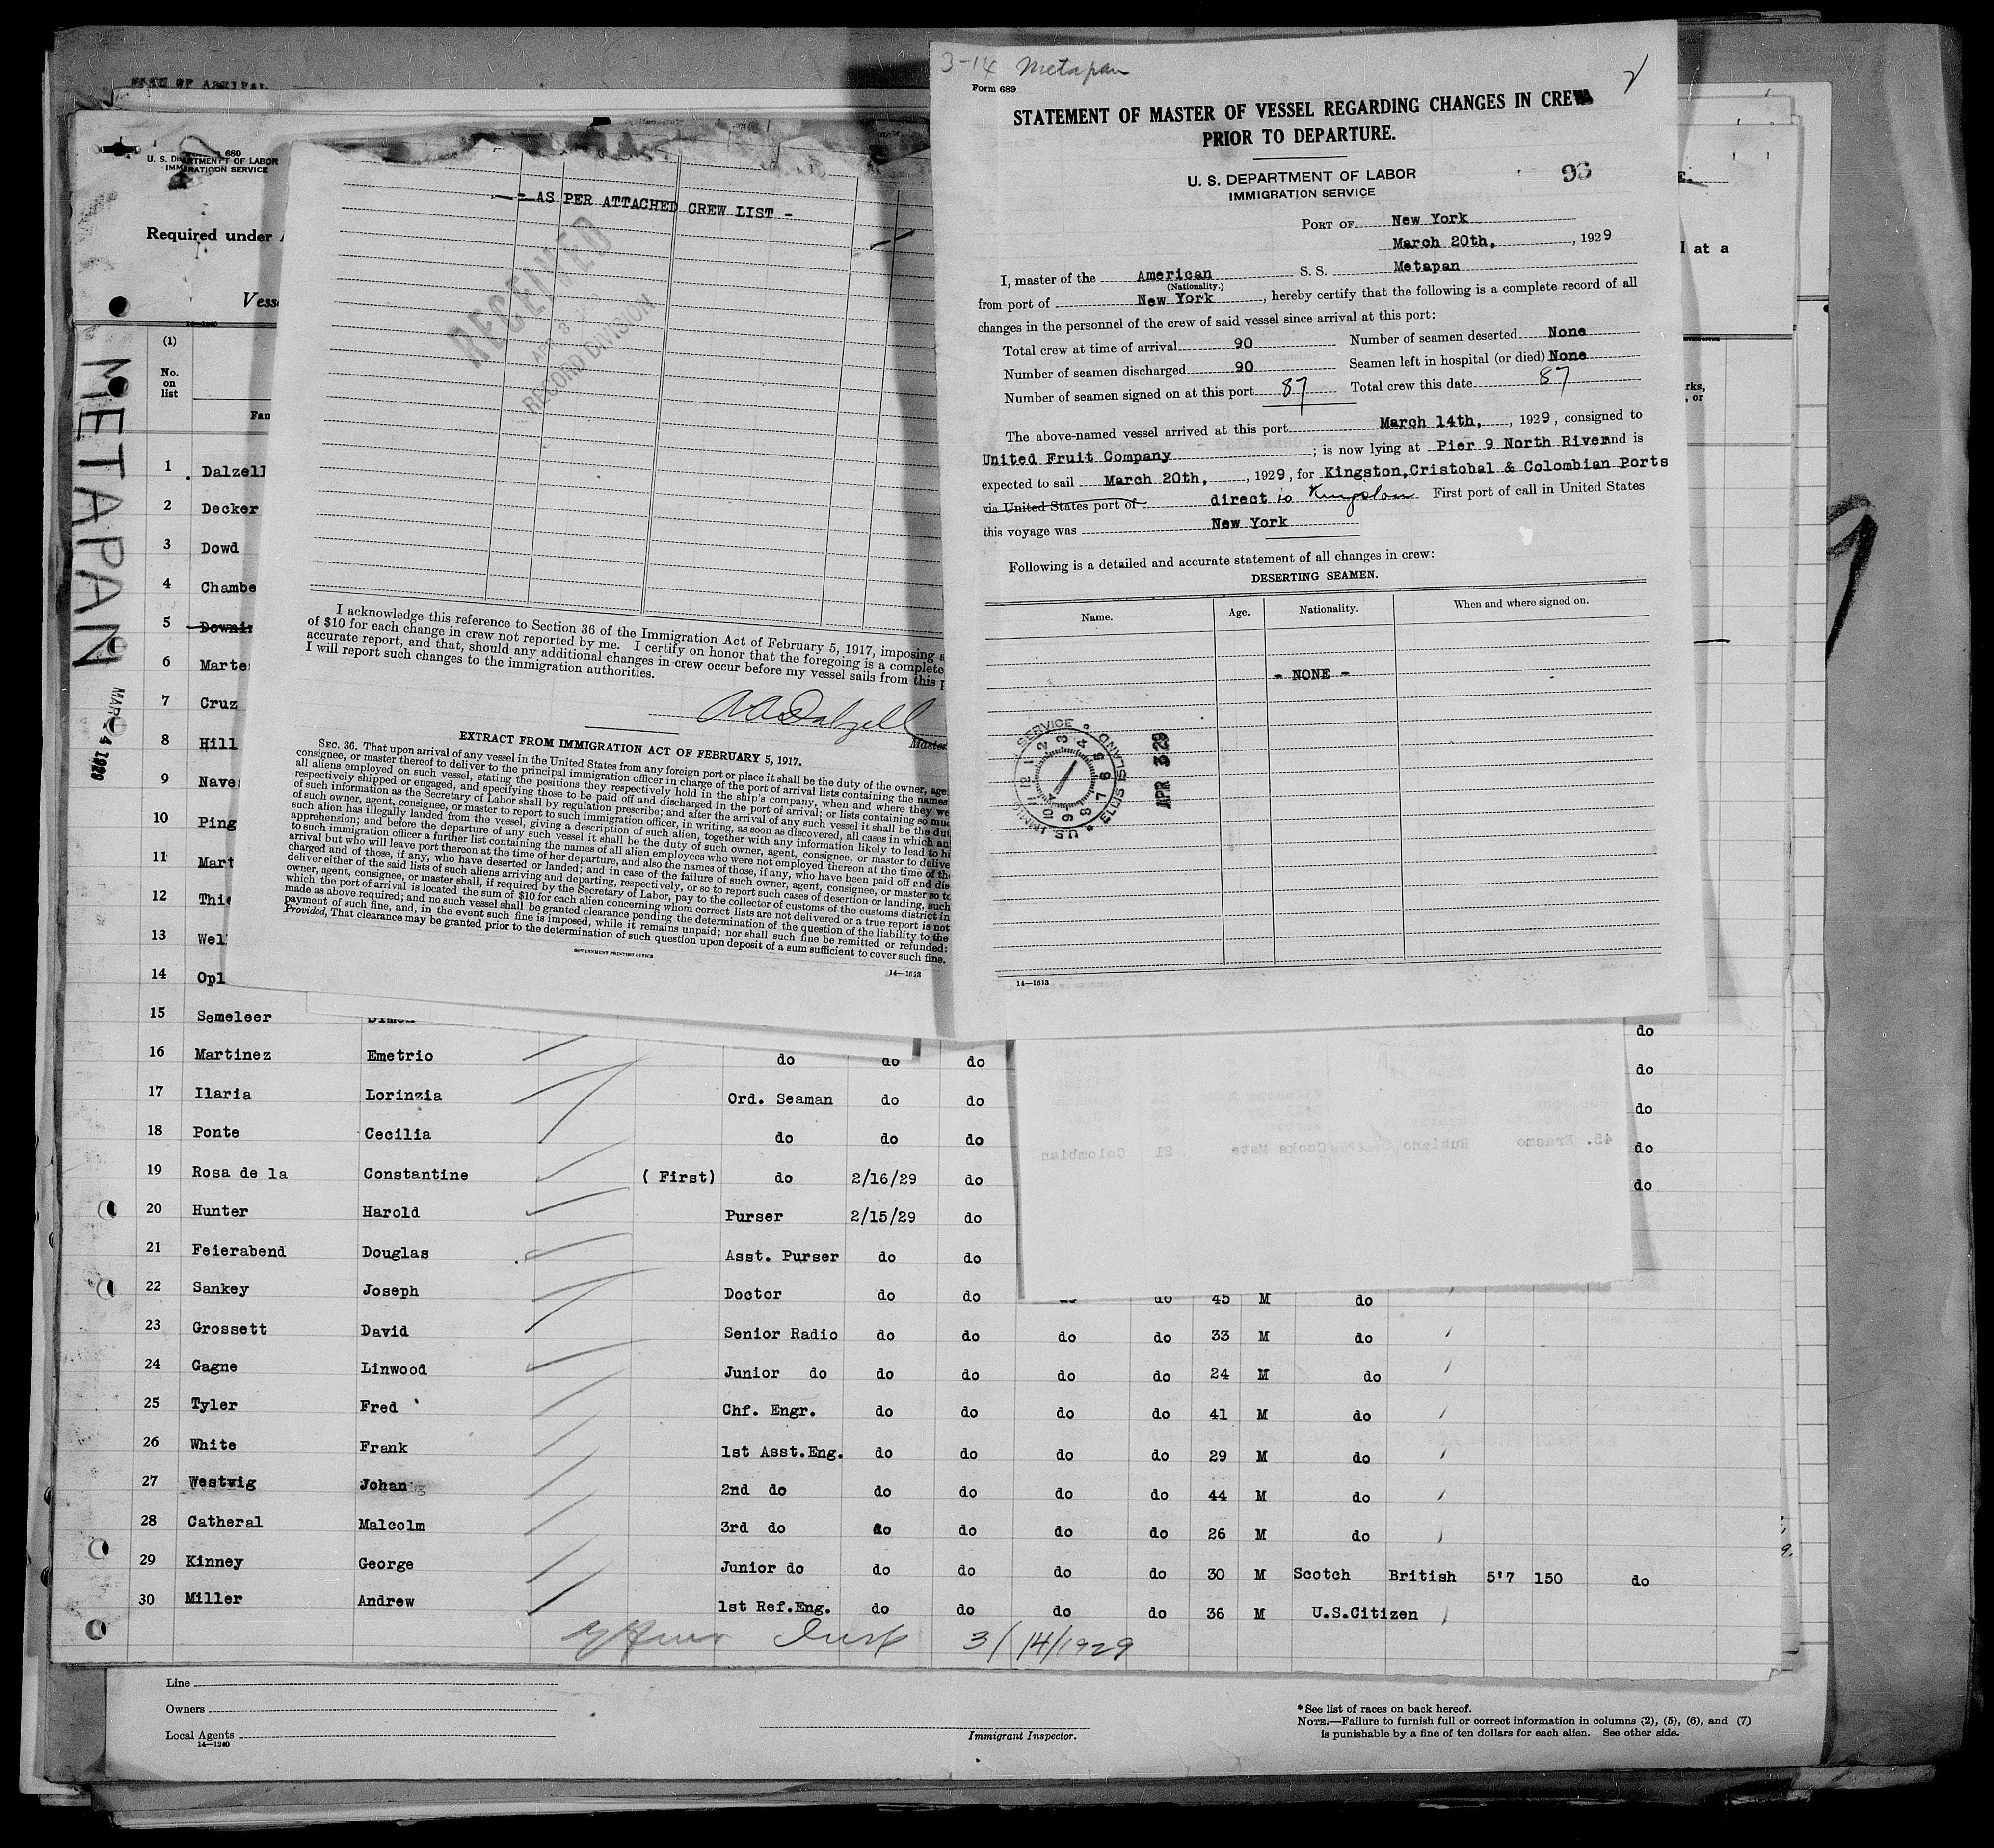 3-14 Metapan
Form 689
STATEMENT OF MASTER OF VESSEL REGARDING CHANGES IN CREW
PRIOR TO DEPARTURE.
U. S. DEPARTMENT OF LABOR
IMMIGRATION SERVICE
PORT OF New York
March 20th, , 1929
I, master of the American S. S. Metapan
(Nationality.)
from port of New York , hereby certify that the following is a complete record of all
changes in the personnel of the crew of said vessel since arrival at this port:
Total crew at time of arrival 90 Number of seamen deserted None
Number of seamen discharged 90 Seamen left in hospital (or died) None
Number of seamen signed on at this port 87 Total crew this date 87
The above-named vessel arrived at this port March 14th, , 1929, consigned to
United Fruit Company ; is now lying at Pier 9 North River and is
expected to sail March 20th, , 1929, for Kingston,Cristobal & Colombian Ports
via United States port of direct to Kingston First port of call in United States
this voyage was New York
Following is a detailed and accurate statement of all changes in crew:
DESERTING SEAMEN.
Name. Age. Nationality. When and where signed on.
- NONE -
U.S. IMMIG. SERVICE ELLIS ISLAND
APR 3 29
14—1613
- AS PER ATTACHED CREW LIST -
RECEIVED
APR 3
RECORD DIVISION
I acknowledge this reference to Section 36 of the Immigration Act of February 5, 1917, imposing a
of $10 for each change in crew not reported by me. I certify on honor that the foregoing is a complete
accurate report, and that, should any additional changes in crew occur before my vessel sails from this p
I will report such changes to the immigration authorities.
Dalzell
Master
EXTRACT FROM IMMIGRATION ACT OF FEBRUARY 5, 1917.
SEC. 36. That upon arrival of any vessel in the United States from any foreign port or place it shall be the duty of the owner, age
consignee, or master thereof to deliver to the principal immigration officer in charge of the port of arrival lists containing the names
all aliens employed on such vessel, stating the positions they respectively hold in the ship's company, when and where they we
respectively shipped or engaged, and specifying those to be paid off and discharged in the port of arrival; or lists containing so muc
of such information as the Secretary of Labor shall by regulation prescribe; and after the arrival of any such vessel it shall be the dut
of such owner, agent, consignee, or master to report to such immigration officer, in writing, as soon as discovered, all cases in which an
such alien has illegally landed from the vessel, giving a description of such alien, together with any information likely to lead to hi
apprehension; and before the departure of any such vessel it shall be the duty of such owner, agent, consignee, or master to delive
to such immigration officer a further list containing the names of all alien employees who were not employed thereon at the time of the
arrival but who will leave port thereon at the time of her departure, and also the names of those, if any, who have been paid off and dis
charged and of those, if any, who have deserted or landed; and in case of the failure of such owner, agent, consignee, or master so to
deliver either of the said lists of such aliens arriving and departing, respectively, or so to report such cases of desertion or landing, such
owner, agent, consignee, or master shall, if required by the Secretary of Labor, pay to the collector of customs of the customs district in
which the port of arrival is located the sum of $10 for each alien concerning whom correct lists are not delivered or a true report is not
made as above required; and no such vessel shall be granted clearance pending the determination of the question of the liability to the
payment of such fine, and, in the event such fine is imposed, while it remains unpaid; nor shall such fine be remitted or refunded:
Provided, That clearance may be granted prior to the determination of such question upon deposit of a sum sufficient to cover such fine.
GOVERNMENT PRINTING OFFICE
14—1613
689
U. S. DEPARTMENT OF LABOR
IMMIGRATION SERVICE
Required under
l at a
Vess
14—1240
METAPAN
(1)
No.
on
list
Fam
1 Dalzell
2 Decker
3 Dowd
4 Chambe
5 Downi
6 Marte
7 Cruz
8 Hill
9 Nave
10 Ping
11 Mart
12 Thie
13 Wel
14 Opl
15 Semeleer Simon do
16 Martinez Emetrio do do do do
17 Ilaria Lorinzia Ord. Seaman do do do
18 Ponte Cecilia do do do do
19 Rosa de la Constantine (First) do 2/16/29 do do
20 Hunter Harold Purser 2/15/29 do
21 Feierabend Douglas Asst. Purser do do
22 Sankey Joseph Doctor do do do do 45 M do
23 Grossett David Senior Radio do do do do 33 M do
24 Gagne Linwood Junior do do do do do 24 M do
25 Tyler Fred Chf. Engr. do do do do 41 M do
26 White Frank 1st Asst.Eng. do do do do 29 M do
27 Westwig Johan 2nd do do do do do 44 M do
28 Catheral Malcolm 3rd do do do do do 26 M do
29 Kinney George Junior do do do do do 30 M Scotch British 5'7 150 do
30 Miller Andrew 1st Ref.Eng. do do do do 36 M U.S.Citizen
3/14/1929
45. Erasmo Rubiano Cooks Mate 21 Colombian
Line
Owners
Local Agents
14—1240
Immigrant Inspector.
*See list of races on back hereof.
NOTE.—Failure to furnish full or correct information in columns (2), (5), (6), and (7)
is punishable by a fine of ten dollars for each alien. See other side.